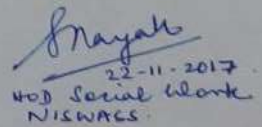 SNayak
22-11-2017
HOD Social Work
NISWASS.